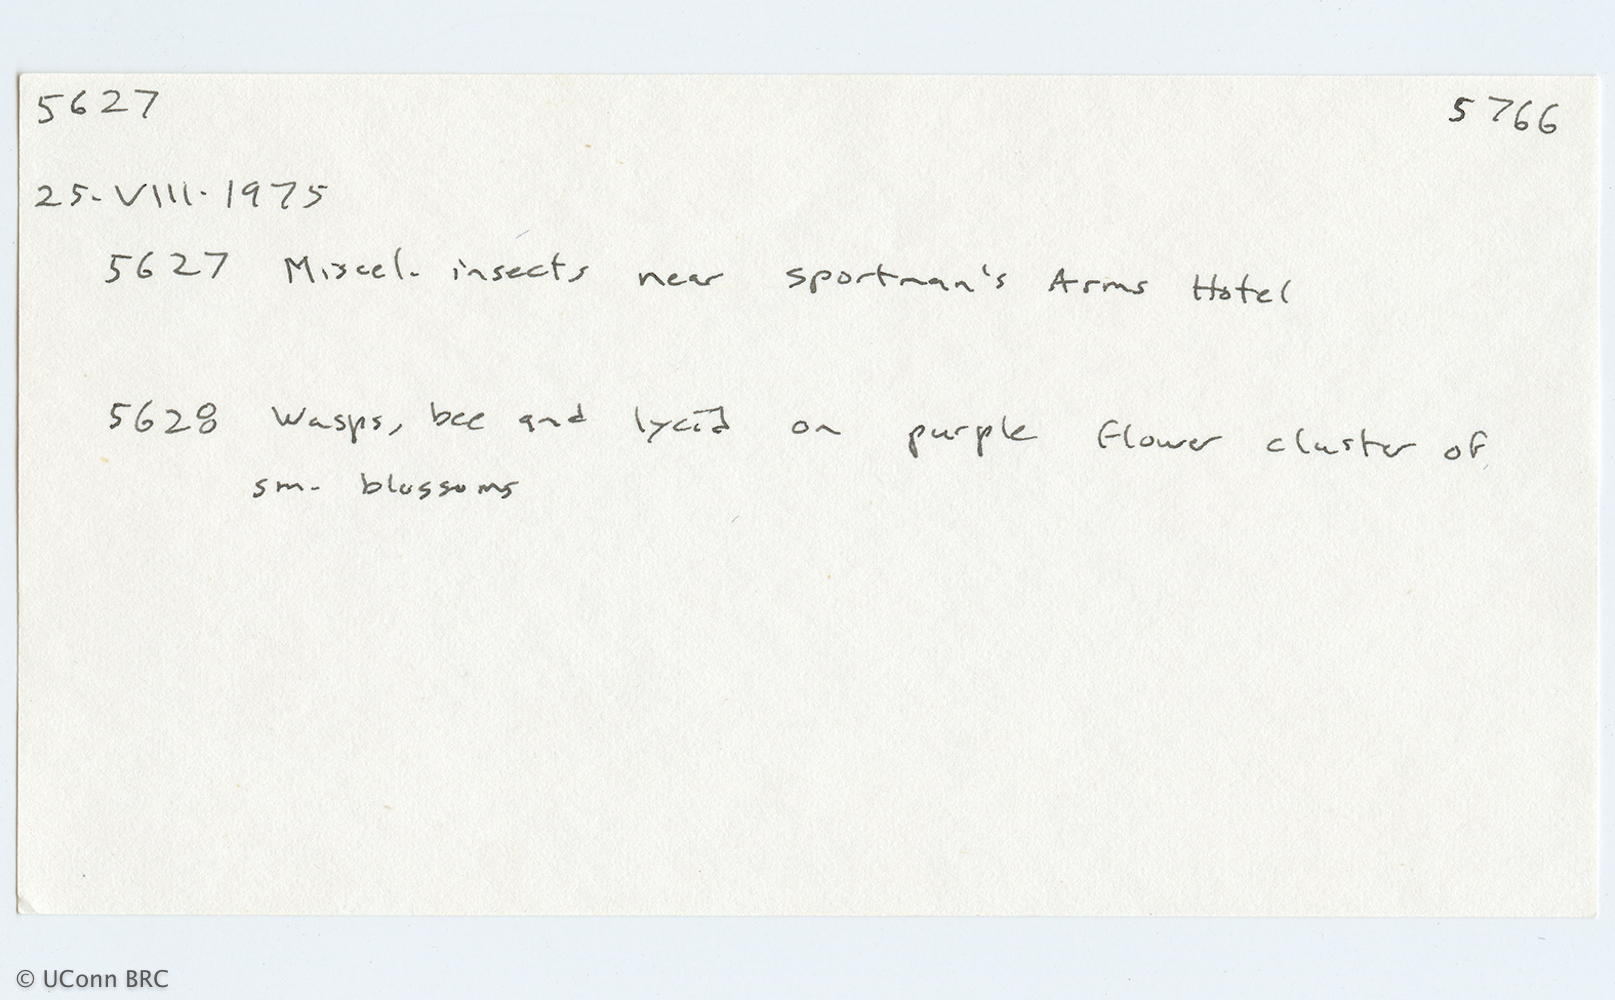 5627 5766
25-VIII-1975
5627 Miscel. insects near sportman's Arms Hotel
5628 Wasps, bee and lycid on purple flower cluster of
sm. blossoms
© UConn BRC